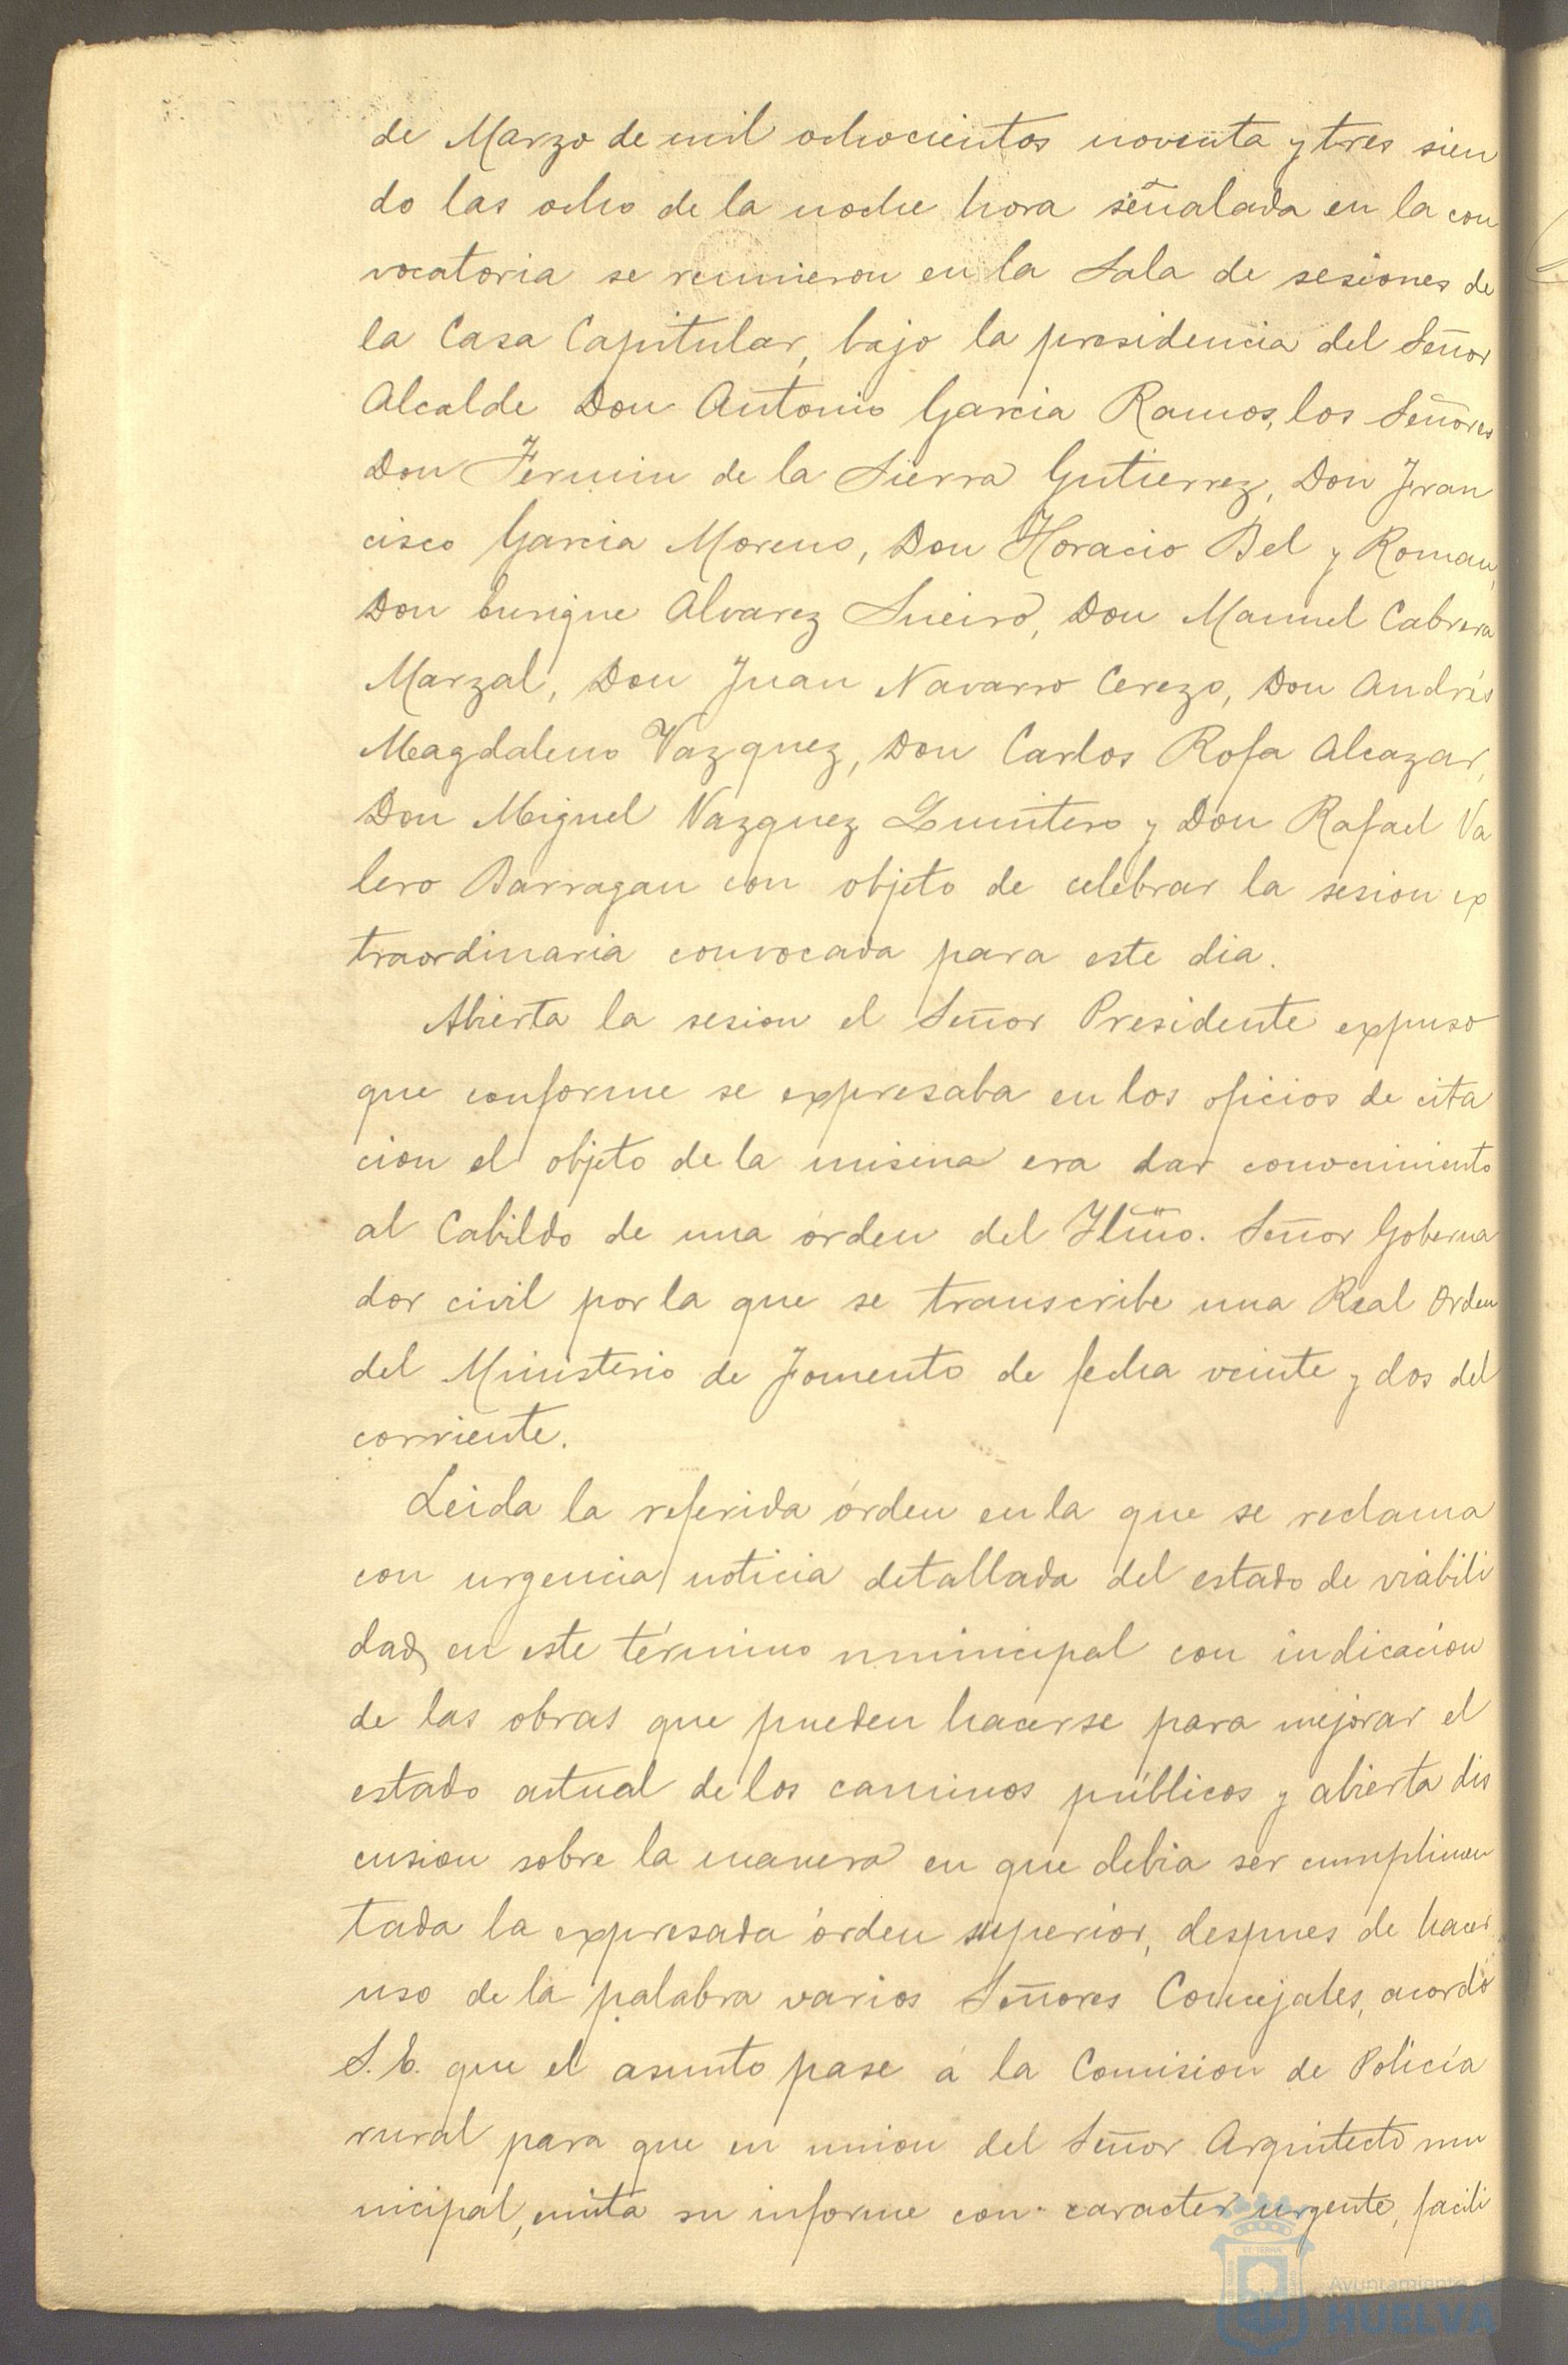 de Marzo de mil ochocientos noventa y tres sien
do las ocho de la noche hora señalada en la con
vocatoria se reunieron en la Sala de sesiones de
la Casa Capitular, bajo la presidencia del Señor
Alcalde Don Antonio Garcia Ramos, los Señores
Don Fermin de la Sierra Gutierrez, Don Fran
cisco Garcia Moreno, Don Horacio Bel y Roman,
Don Enrique Alvarez Sueiro, Don Manuel Cabrera
Marzal, Don Juan Navarro Cerezo, Don Andrés
Magdaleno Vazquez, Don Carlos Rofa Alcazar,
Don Miguel Vazquez Quintero y Don Rafael Va
lero Barragan con objeto de celebrar la sesion ex
traordinaria convocada para este dia.
Abierta la sesion el Señor Presidente expuso
que conforme se expresaba en los oficios de cita
cion el objeto de la misma era dar conocimiento
al Cabildo de una órden del Iltmo. Señor Goberna
dor civil por la que se transcribe una Real Orden
del Ministerio de Fomento de fecha veinte y dos del
corriente.
Leida la referida órden en la que se reclama
con urgencia noticia detallada del estado de viabili
dad, en este término municipal con indicacion
de las obras que pueden hacerse para mejorar el
estado actual de los caminos públicos y abierta dis
cusion sobre la manera en que debia ser cumplimen
tada la expresada órden superior, despues de hacer
uso de la palabra varios Señores Concejales, acordó
S.E. que el asunto pase á la Comision de Policía
rural para que en union del Señor Arquitecto mu
nicipal, emita su informe con caracter urgente, facili
Ayuntamiento de
HUELVA